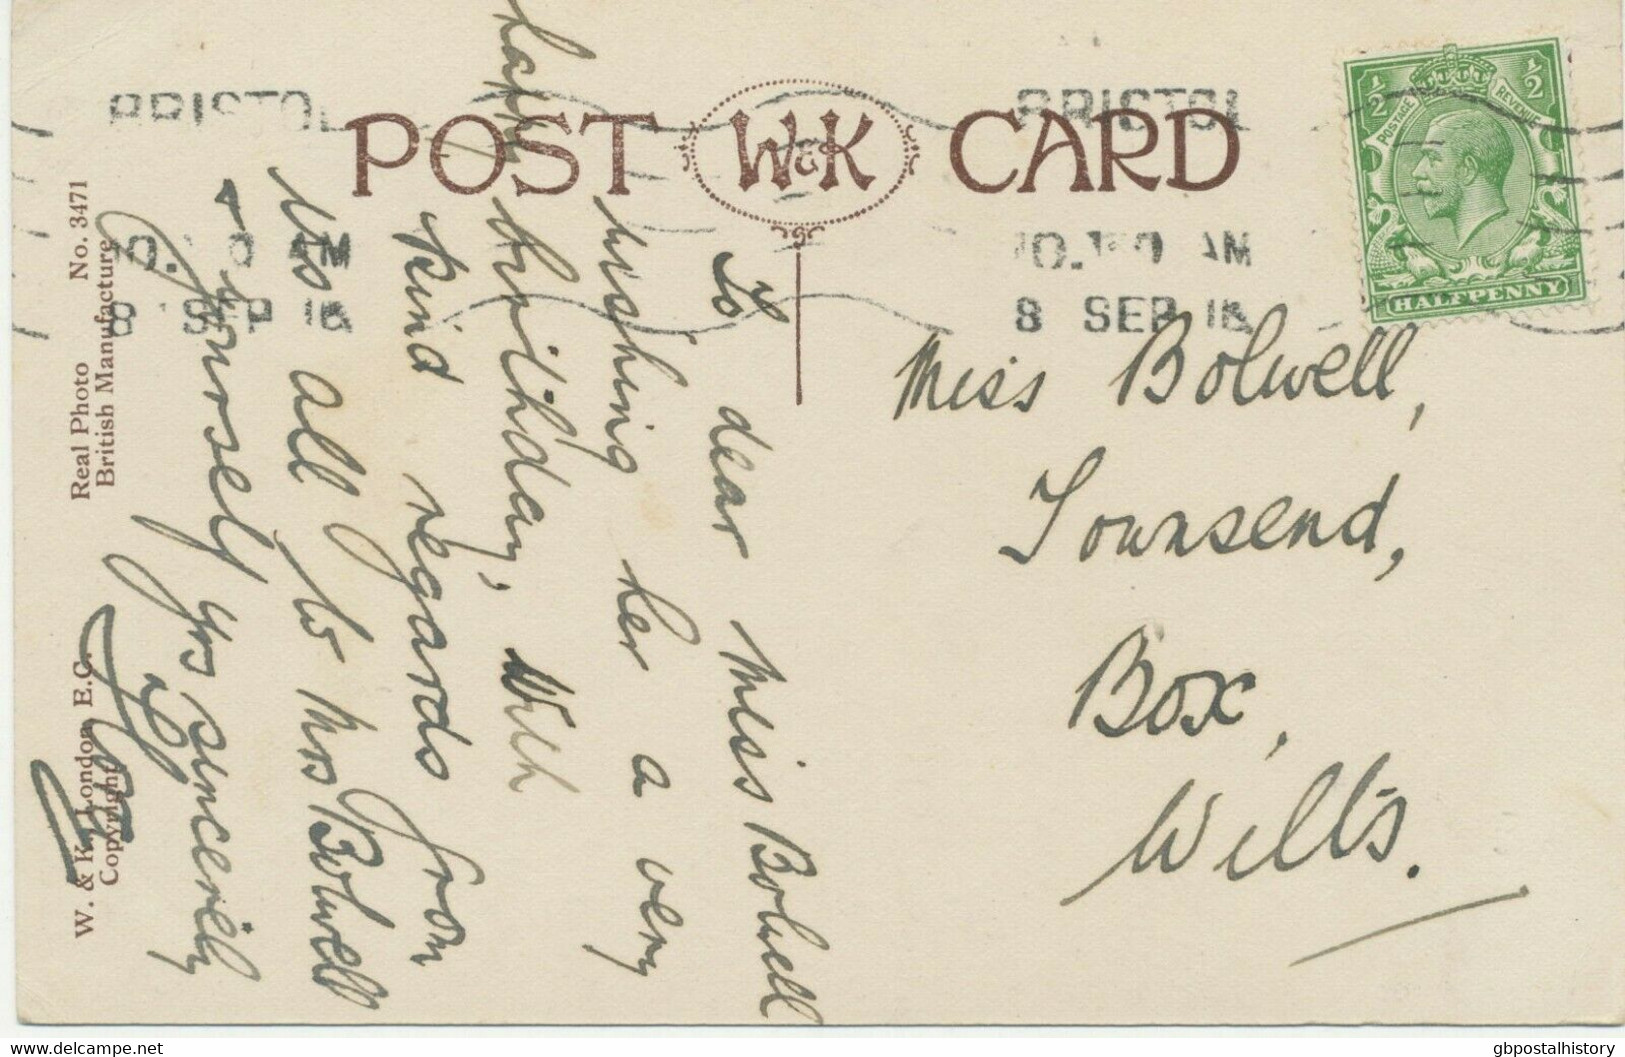 POST W&K CARD
BRISTOL
BRISTOL
10. AM
8 SEP 16
10. AM
8 SEP 16
½ ½
POSTAGE REVENUE
HALFPENNY
Real Photo No. 3471
British Manufacture
W. & K., London, E.C.
Copyright
To dear Miss Bolwell
wishing her a very
happy birthday, With
kind regards from
us all to Mrs Bolwell
& yourself yrs sincerely
Miss Bolwell,
Townsend,
Box,
Wilts.
Delcampe.com
gbpostalhistory